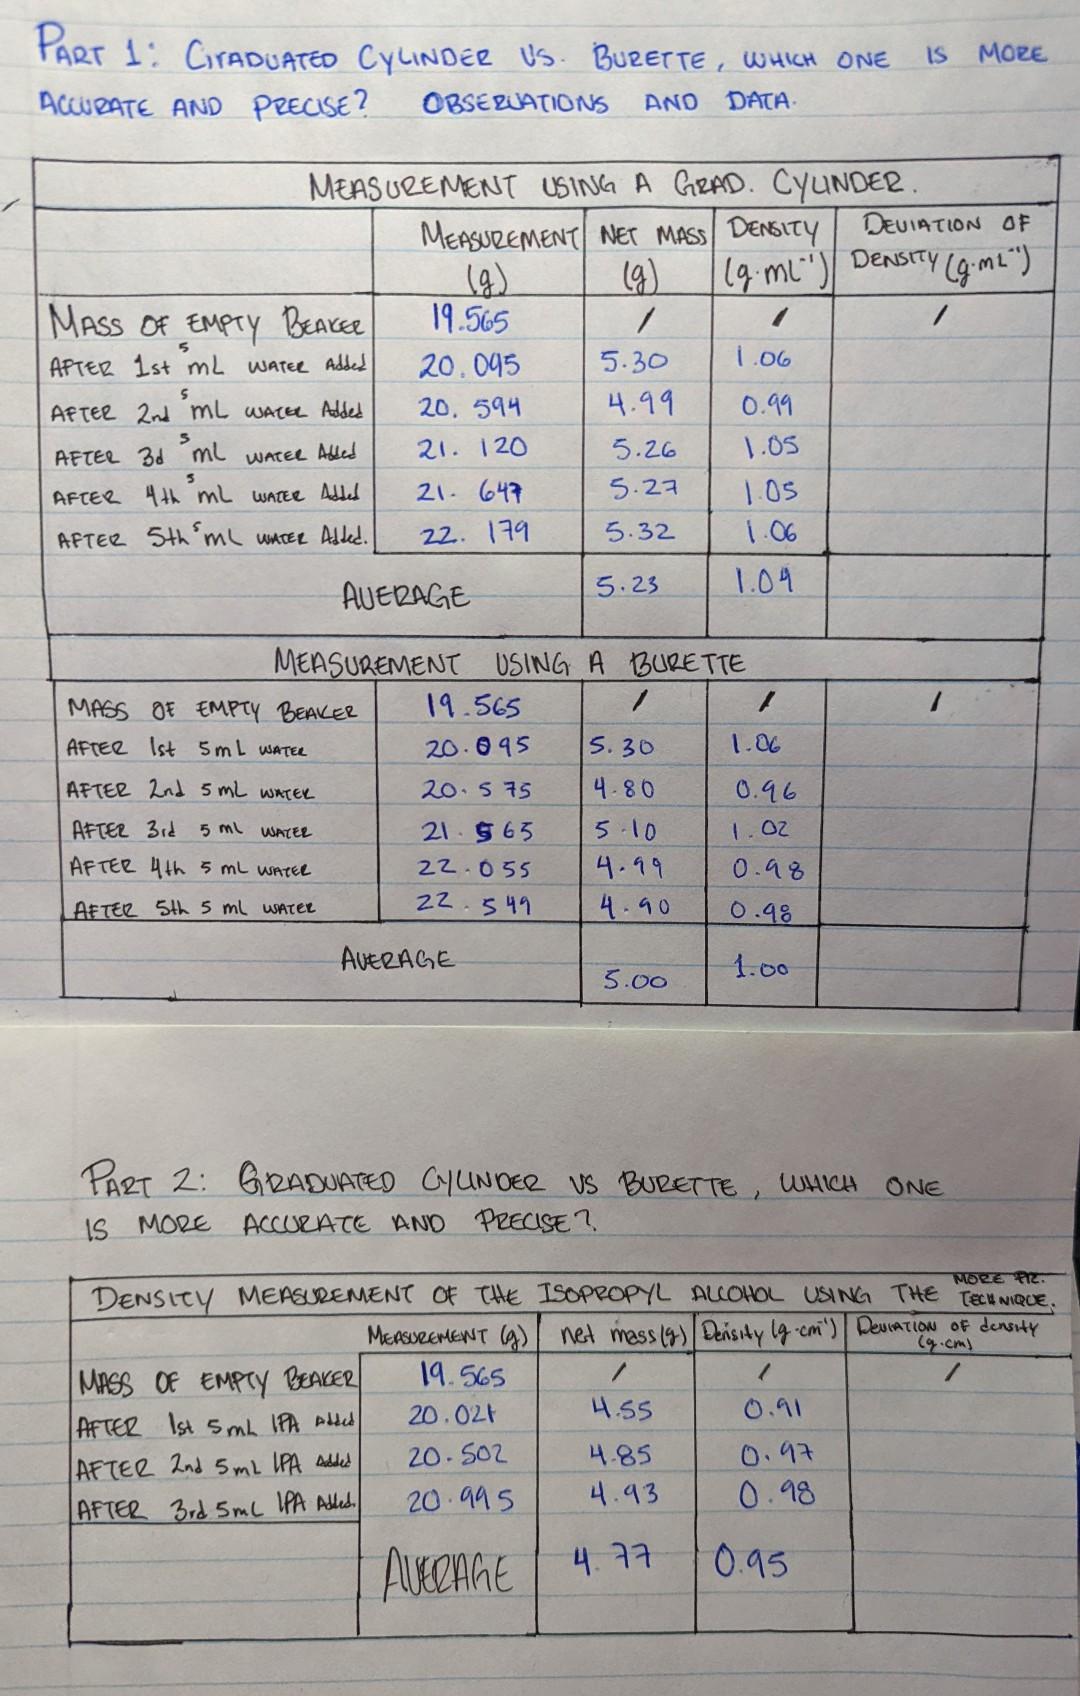 PART 1: GRADUATED CYLINDER VS. BURETTE, WHICH ONE IS MORE
ACCURATE AND PRECISE? OBSERVATIONS AND DATA.
MEASUREMENT USING A GRAD. CYLINDER.
MEASUREMENT (g) NET MASS (g) DENSITY (g·mL⁻¹) DEVIATION OF DENSITY (g·mL⁻¹)
MASS OF EMPTY BEAKER 19.565 / / /
AFTER 1st 5 mL WATER Added 20.095 5.30 1.06
AFTER 2nd 5 mL WATER Added 20.594 4.99 0.99
AFTER 3d 5 mL WATER Added 21.120 5.26 1.05
AFTER 4th 5 mL WATER Added 21.647 5.27 1.05
AFTER 5th 5 mL WATER Added. 22.179 5.32 1.06
AVERAGE 5.23 1.04
MEASUREMENT USING A BURETTE
MASS OF EMPTY BEAKER 19.565 / / /
AFTER 1st 5 mL WATER 20.095 5.30 1.06
AFTER 2nd 5 mL WATER 20.575 4.80 0.96
AFTER 3rd 5 mL WATER 21.565 5.10 1.02
AFTER 4th 5 mL WATER 22.055 4.99 0.98
AFTER 5th 5 mL WATER 22.549 4.90 0.98
AVERAGE 5.00 1.00
PART 2: GRADUATED CYLINDER VS BURETTE, WHICH ONE
IS MORE ACCURATE AND PRECISE?
DENSITY MEASUREMENT OF THE ISOPROPYL ALCOHOL USING THE MORE TECHNIQUE.
MEASUREMENT (g) net mass (g) Density (g·cm⁻¹) DEVIATION OF density (g·cm)
MASS OF EMPTY BEAKER 19.565 / / /
AFTER 1st 5 mL IPA Added 20.021 4.55 0.91
AFTER 2nd 5 mL IPA Added 20.502 4.85 0.97
AFTER 3rd 5 mL IPA Added. 20.995 4.93 0.98
AVERAGE 4.77 0.95